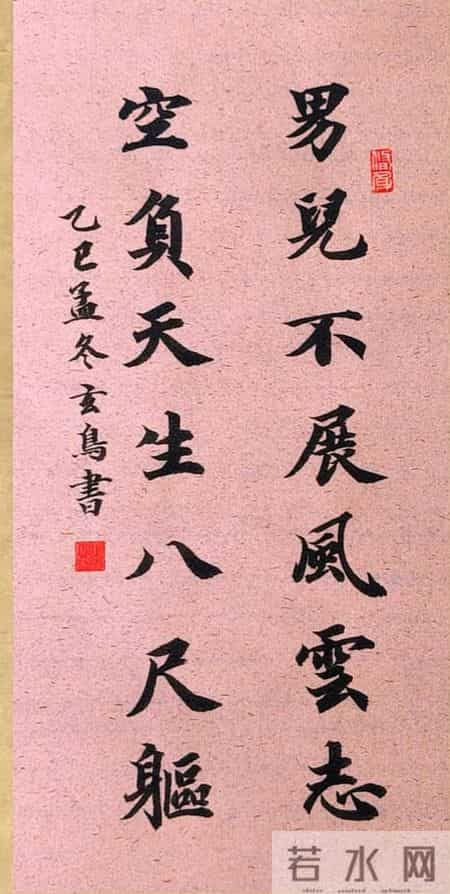 男兒不展風雲志
空負天生八尺軀
乙巳孟冬玄鳥書
若水网